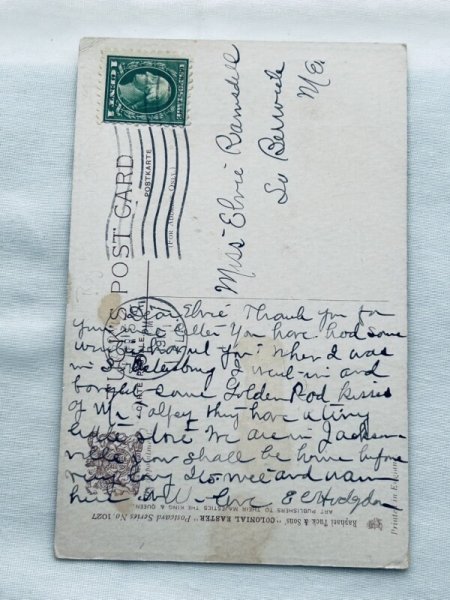 1 CENT 1
POST CARD
POSTKARTE
(FOR ADDRESS ONLY.)
Miss Elvie Ramsdell
So Berwick
Me.
1917
Dear Elvie Thank you for
your letter You have had some
winter havent you. When I was
in St Petersburg I went in and
bought some Golden Rod Kisses
of Mr. they have a tiny
little store We are in Jackson-
ville now shall be home before
very long Its nice and warm
here Love E E Hodgdon
Raphael Tuck & Sons' "COLONIAL EASTER" Postcard Series No 1027
ART PUBLISHERS TO THEIR MAJESTIES THE KING & QUEEN
Printed in